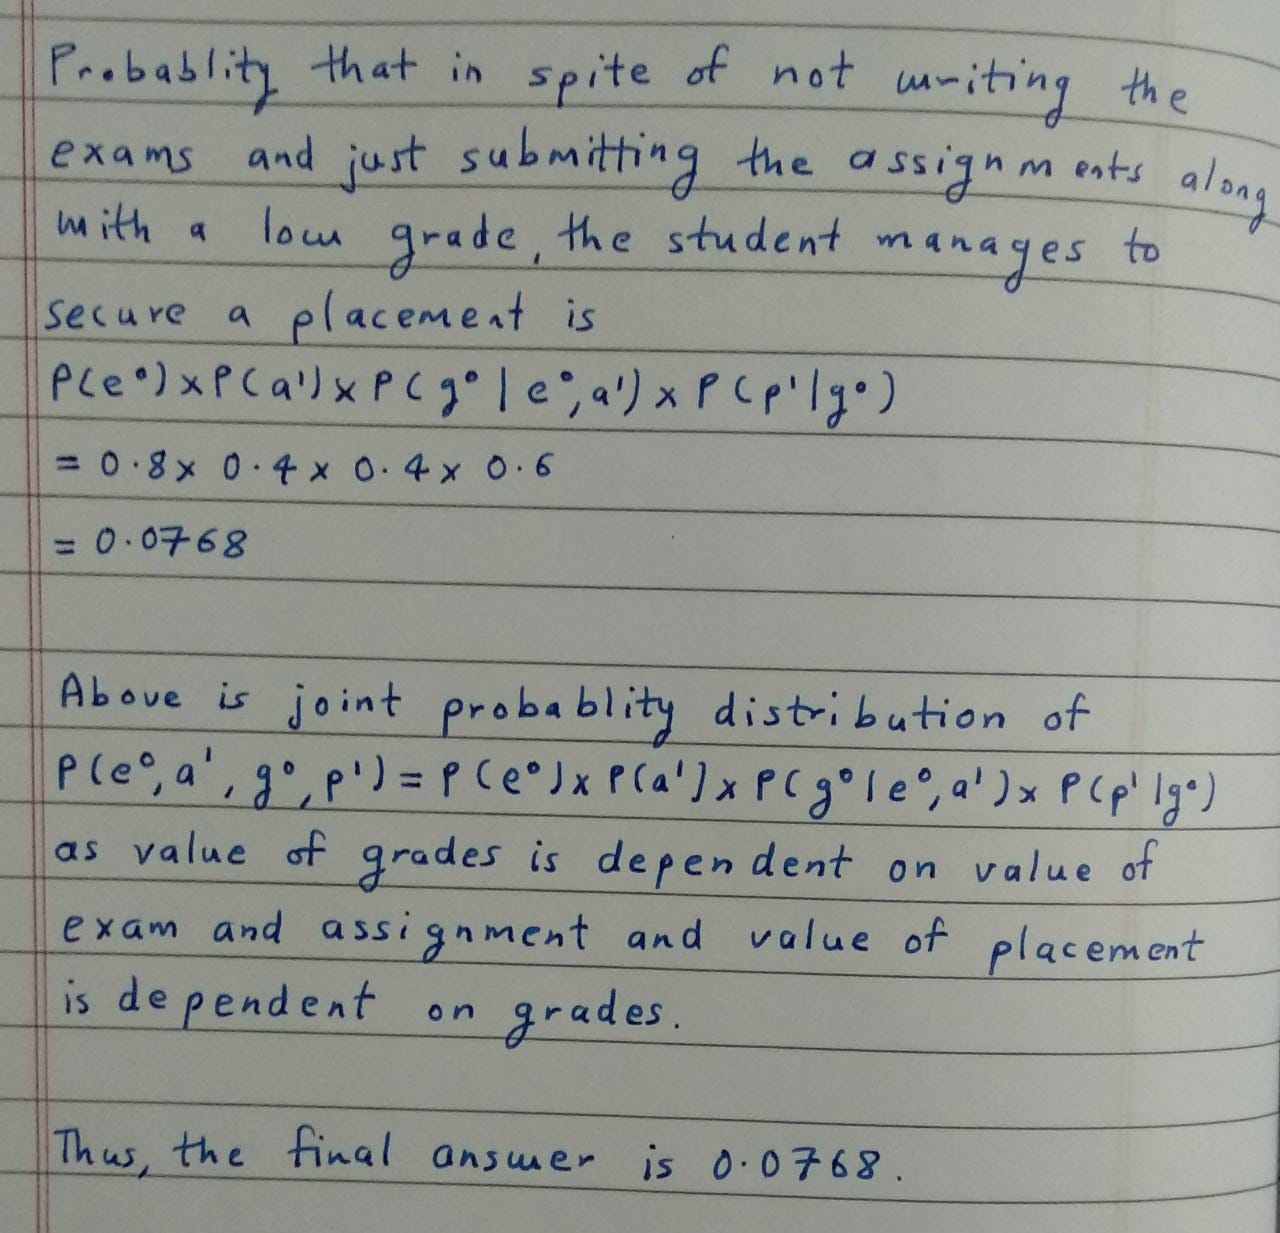 Probablity that in spite of not writing the
exams and just submitting the assignments along
with a low grade, the student manages to
secure a placement is
P(e⁰) x P(a¹) x P(g⁰|e⁰,a¹) x P(p¹|g⁰)
= 0.8 x 0.4 x 0.4 x 0.6
= 0.0768
Above is joint probablity distribution of
P(e⁰, a¹, g⁰, p¹) = P(e⁰) x P(a¹) x P(g⁰|e⁰,a¹) x P(p¹|g⁰)
as value of grades is dependent on value of
exam and assignment and value of placement
is dependent on grades.
Thus, the final answer is 0.0768.